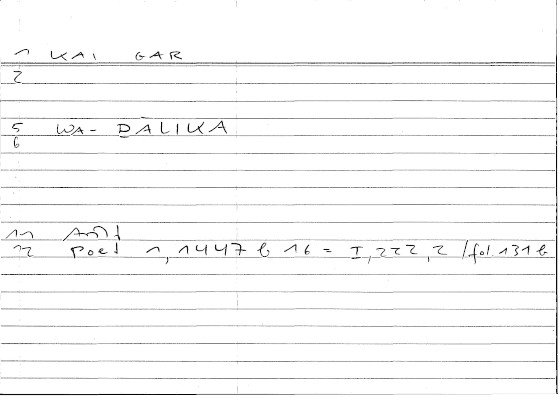 1 KAI GAR
2
5 WA- DALIKA
6
11 Arist
12 Poet 1, 1447 b 16 = I, 222, 2 / fol. 131 b